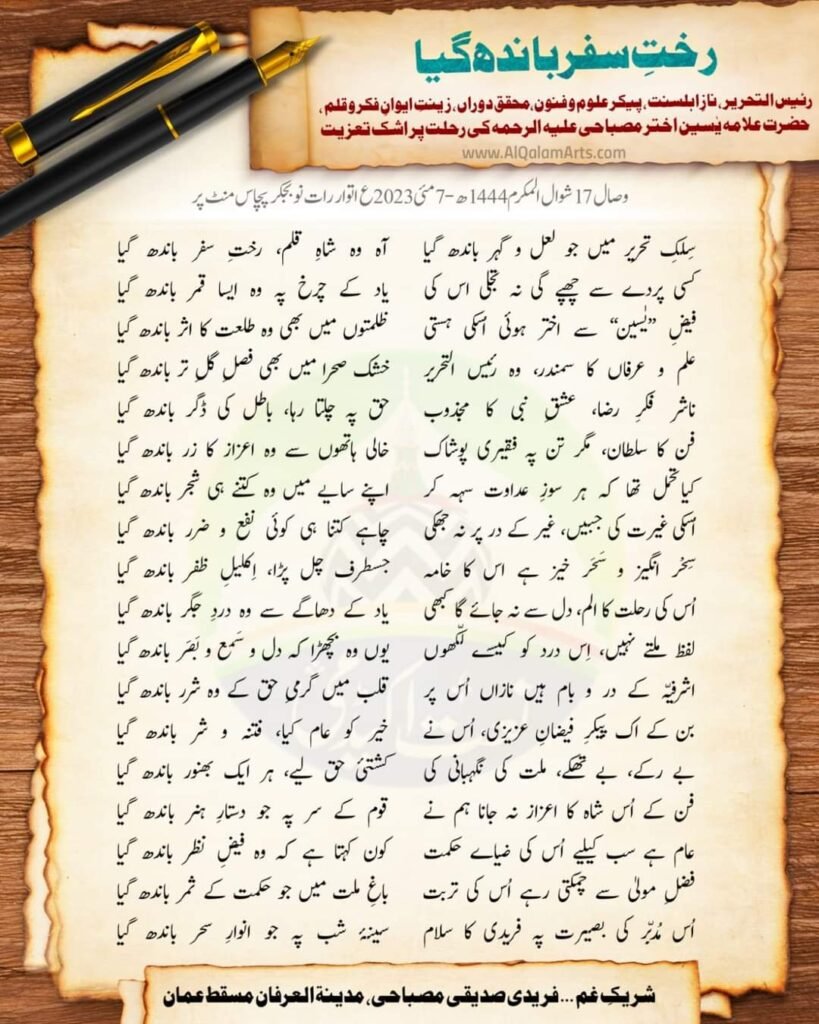 رختِ سفر باندھ گیا
رئیس التحریر، ناز اہلسنت، پیکر علوم وفنون، محقق دوراں، زینتِ ایوانِ فکر و قلم،
حضرت علامہ یٰسین اختر مصباحی علیہ الرحمہ کی رحلت پر اشک تعزیت
www.AlQalamArts.com
وصال 17 شوال المکرم 1444ھ -7 مئی 2023ع اتوار رات نو بجکر پچاس منٹ پر
سِلکِ تحریر میں جو لعل و گہر باندھ گیا آہ وہ شاہِ قلم، رختِ سفر باندھ گیا
کسی پردے سے چھپے گی نہ تجلی اس کی یاد کے چرخ پہ وہ ایسا قمر باندھ گیا
فیضِ ”یٰسین“ سے اختر ہوئی اسکی ہستی ظلمتوں میں بھی وہ طلعت کا اثر باندھ گیا
علم و عرفاں کا سمندر، وہ رئیس التحریر خشک صحرا میں بھی فصلِ گلِ تر باندھ گیا
ناشرِ فکرِ رضا، عشقِ نبی کا مجذوب حق پہ چلتا رہا، باطل کی ڈگر باندھ گیا
فن کا سلطان، مگر تن پہ فقیری پوشاک خالی ہاتھوں سے وہ اعزاز کا زر باندھ گیا
کیا تحمل تھا کہ ہر سوزِ عداوت سہہ کر اپنے سایے میں وہ کتنے ہی شجر باندھ گیا
اسکی غیرت کی جبیں، غیر کے در پر نہ جھکی چاہے کتنا ہی کوئی نفع و ضرر باندھ گیا
سِحْر انگیز و سَحَر خیز ہے اس کا خامہ جسطرف چل پڑا، اِکلیلِ ظفر باندھ گیا
اُس کی رحلت کا الم، دل سے نہ جائے گا کبھی یاد کے دھاگے سے وہ دردِ جگر باندھ گیا
لفظ ملتے نہیں، اِس درد کو کیسے لکّھوں یوں وہ بچھڑا کہ دل و سَمع و بَصَر باندھ گیا
اشرفیّہ کے در و بام ہیں نازاں اُس پر قلب میں گرمیِ حق کے وہ شرر باندھ گیا
بن کے اک پیکرِ فیضانِ عزیزی، اُس نے خیر کو عام کیا، فتنہ و شر باندھ گیا
بے رکے، بے تھکے، ملت کی نگہبانی کی کشتیٔ حق لیے، ہر ایک بھنور باندھ گیا
فن کے اُس شاہ کا اعزاز نہ جانا ہم نے قوم کے سر پہ جو دستارِ ہنر باندھ گیا
عام ہے سب کیلیے اُس کی ضیاے حکمت کون کہتا ہے کہ وہ فیضِ نظر باندھ گیا
فضلِ مولیٰ سے چمکتی رہے اُس کی تربت باغِ ملت میں جو حکمت کے ثمر باندھ گیا
اُس مُدبّر کی بصیرت پہ فریدی کا سلام سینۂ شب پہ جو انوارِ سحر باندھ گیا
شریکِ غم ... فریدی صدیقی مصباحی، مدینۃ العرفان مسقط عمان